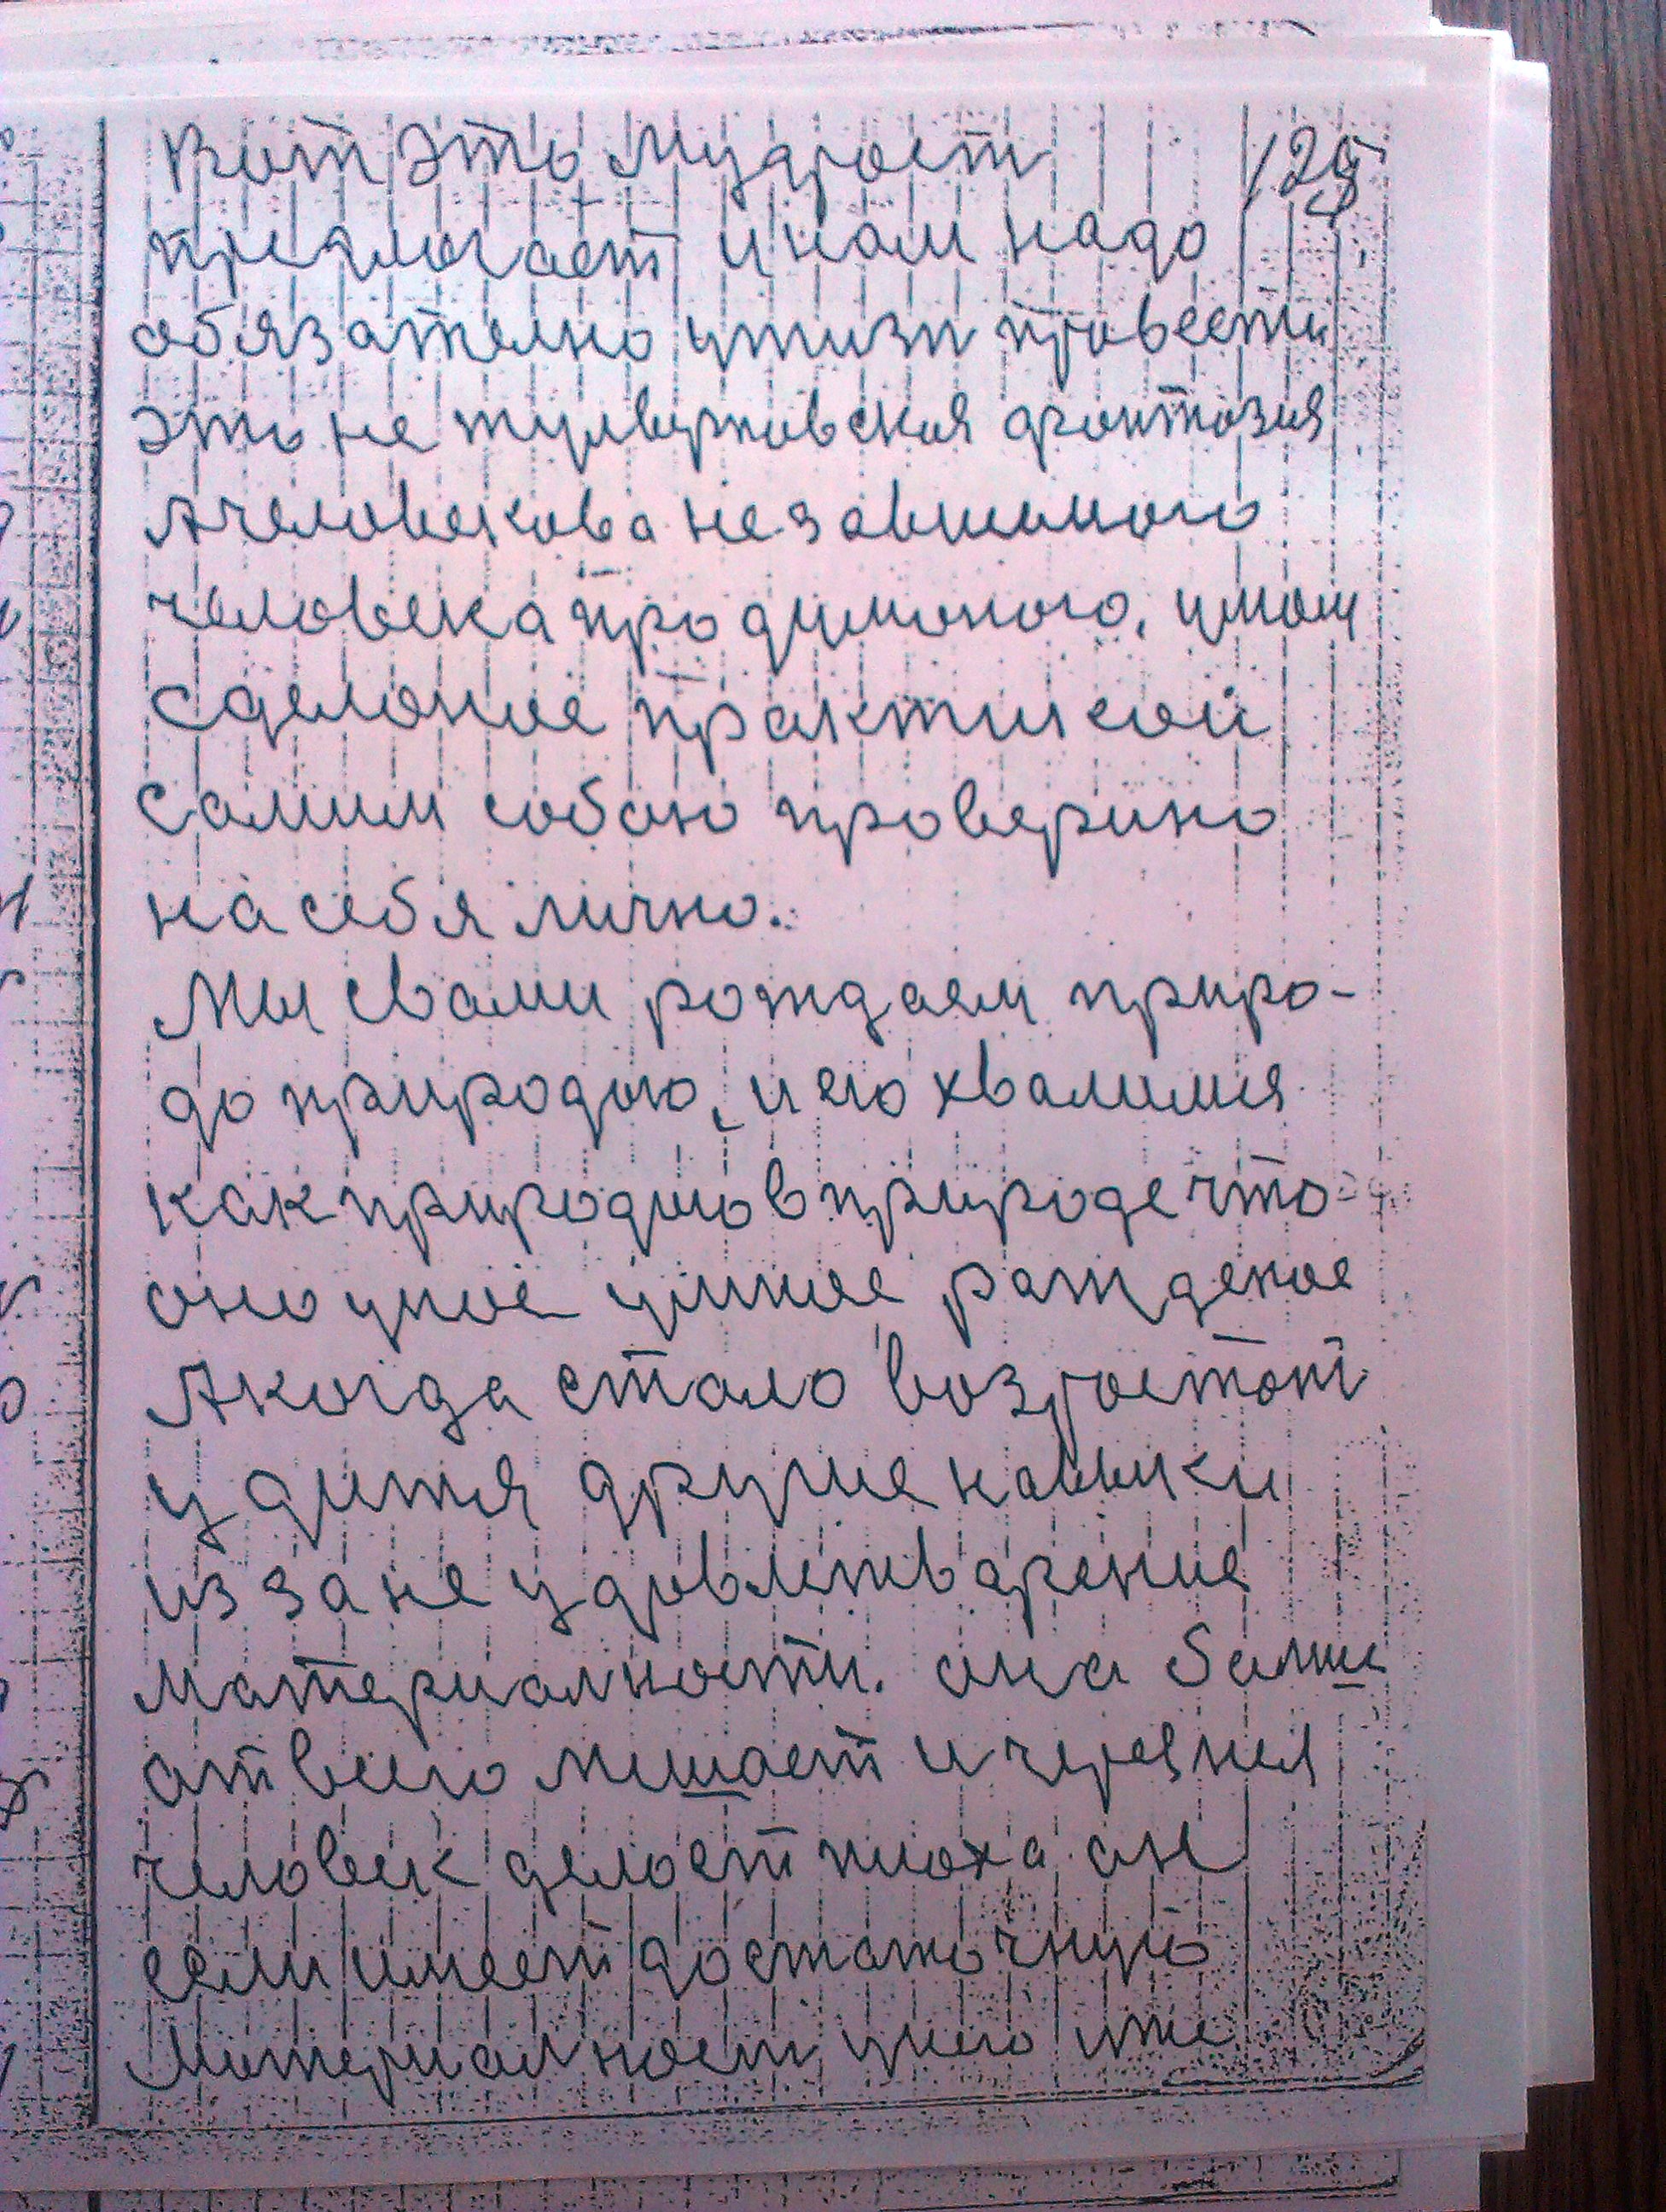 Вот это мудрост 125
предлогает и нам надо
обязателно ужизн провести
это не жулверновская фонтозия
Ачеловекова незавысимого
человека про думоного, умом
сделоное практикой
самим собою проверино
на себя лично.
Мы свами рождаем приро-
до природою, и ею хвалимся
как природою в природе что
оно умное рожденое
Акогда стало возростат
у дитя другие навыки
из за не удовлетварение
материалности. она болше
от всего мешает и через нея
человек делоет плоха он
если имеет достаточную
Материалност у него уже